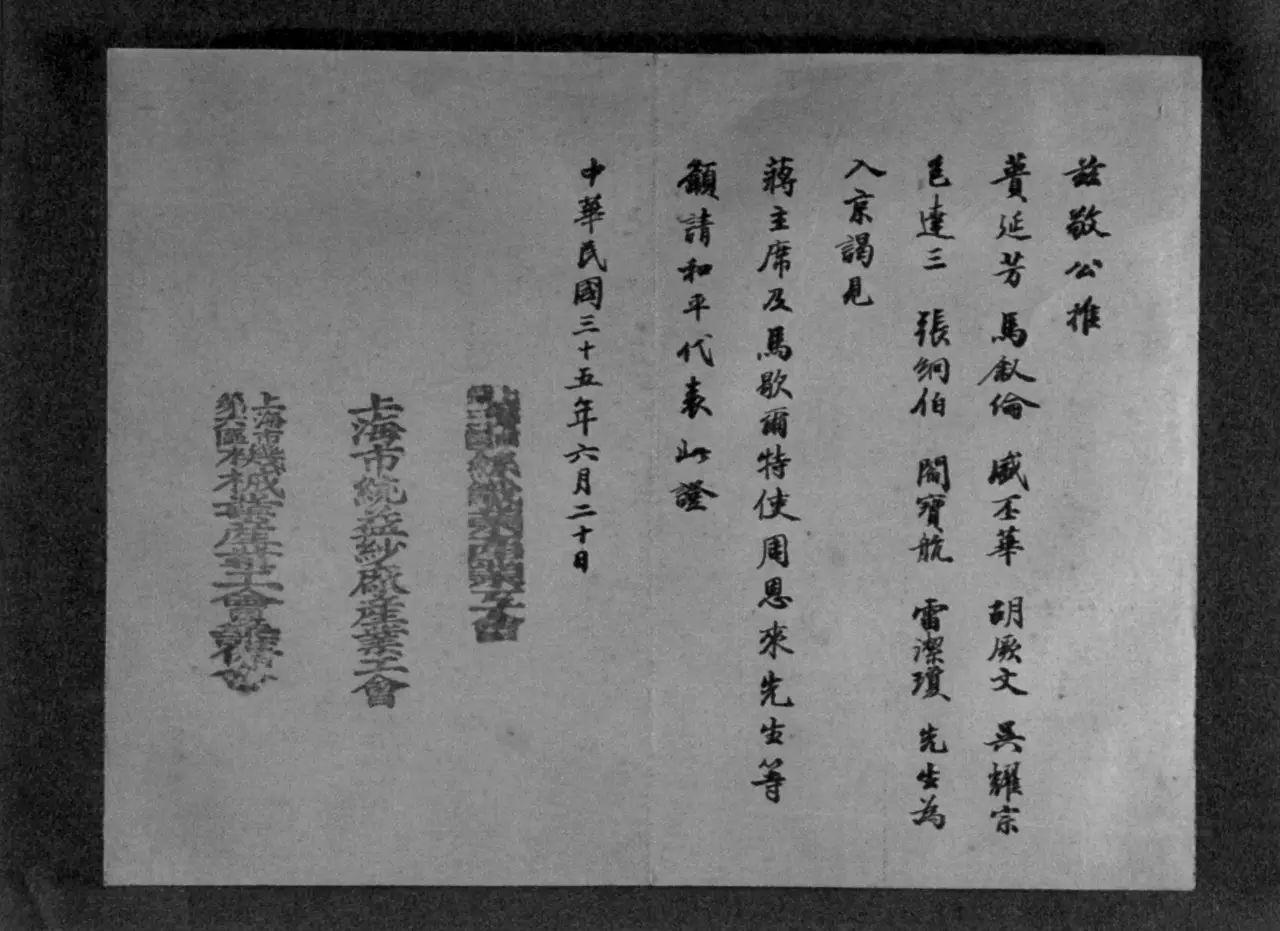 茲敬公推
蕢延芳 馬叙倫 盛丕華 胡厥文 吳耀宗
包達三 張絅伯 閻寶航 雷潔瓊 先生為
入京謁見
蔣主席及馬歇爾特使周恩來先生等
籲請和平代表此證
中華民國三十五年六月二十日
絲織業產業工會
上海市統益紗廠產業工會
上海市
第六區機械業產業工會籌備會